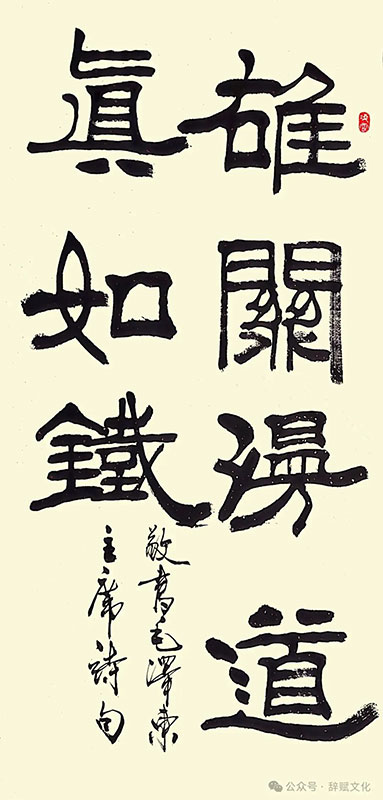 雄關漫道
眞如鐵
敬書毛澤東
主席詩句
公众号·辞赋文化